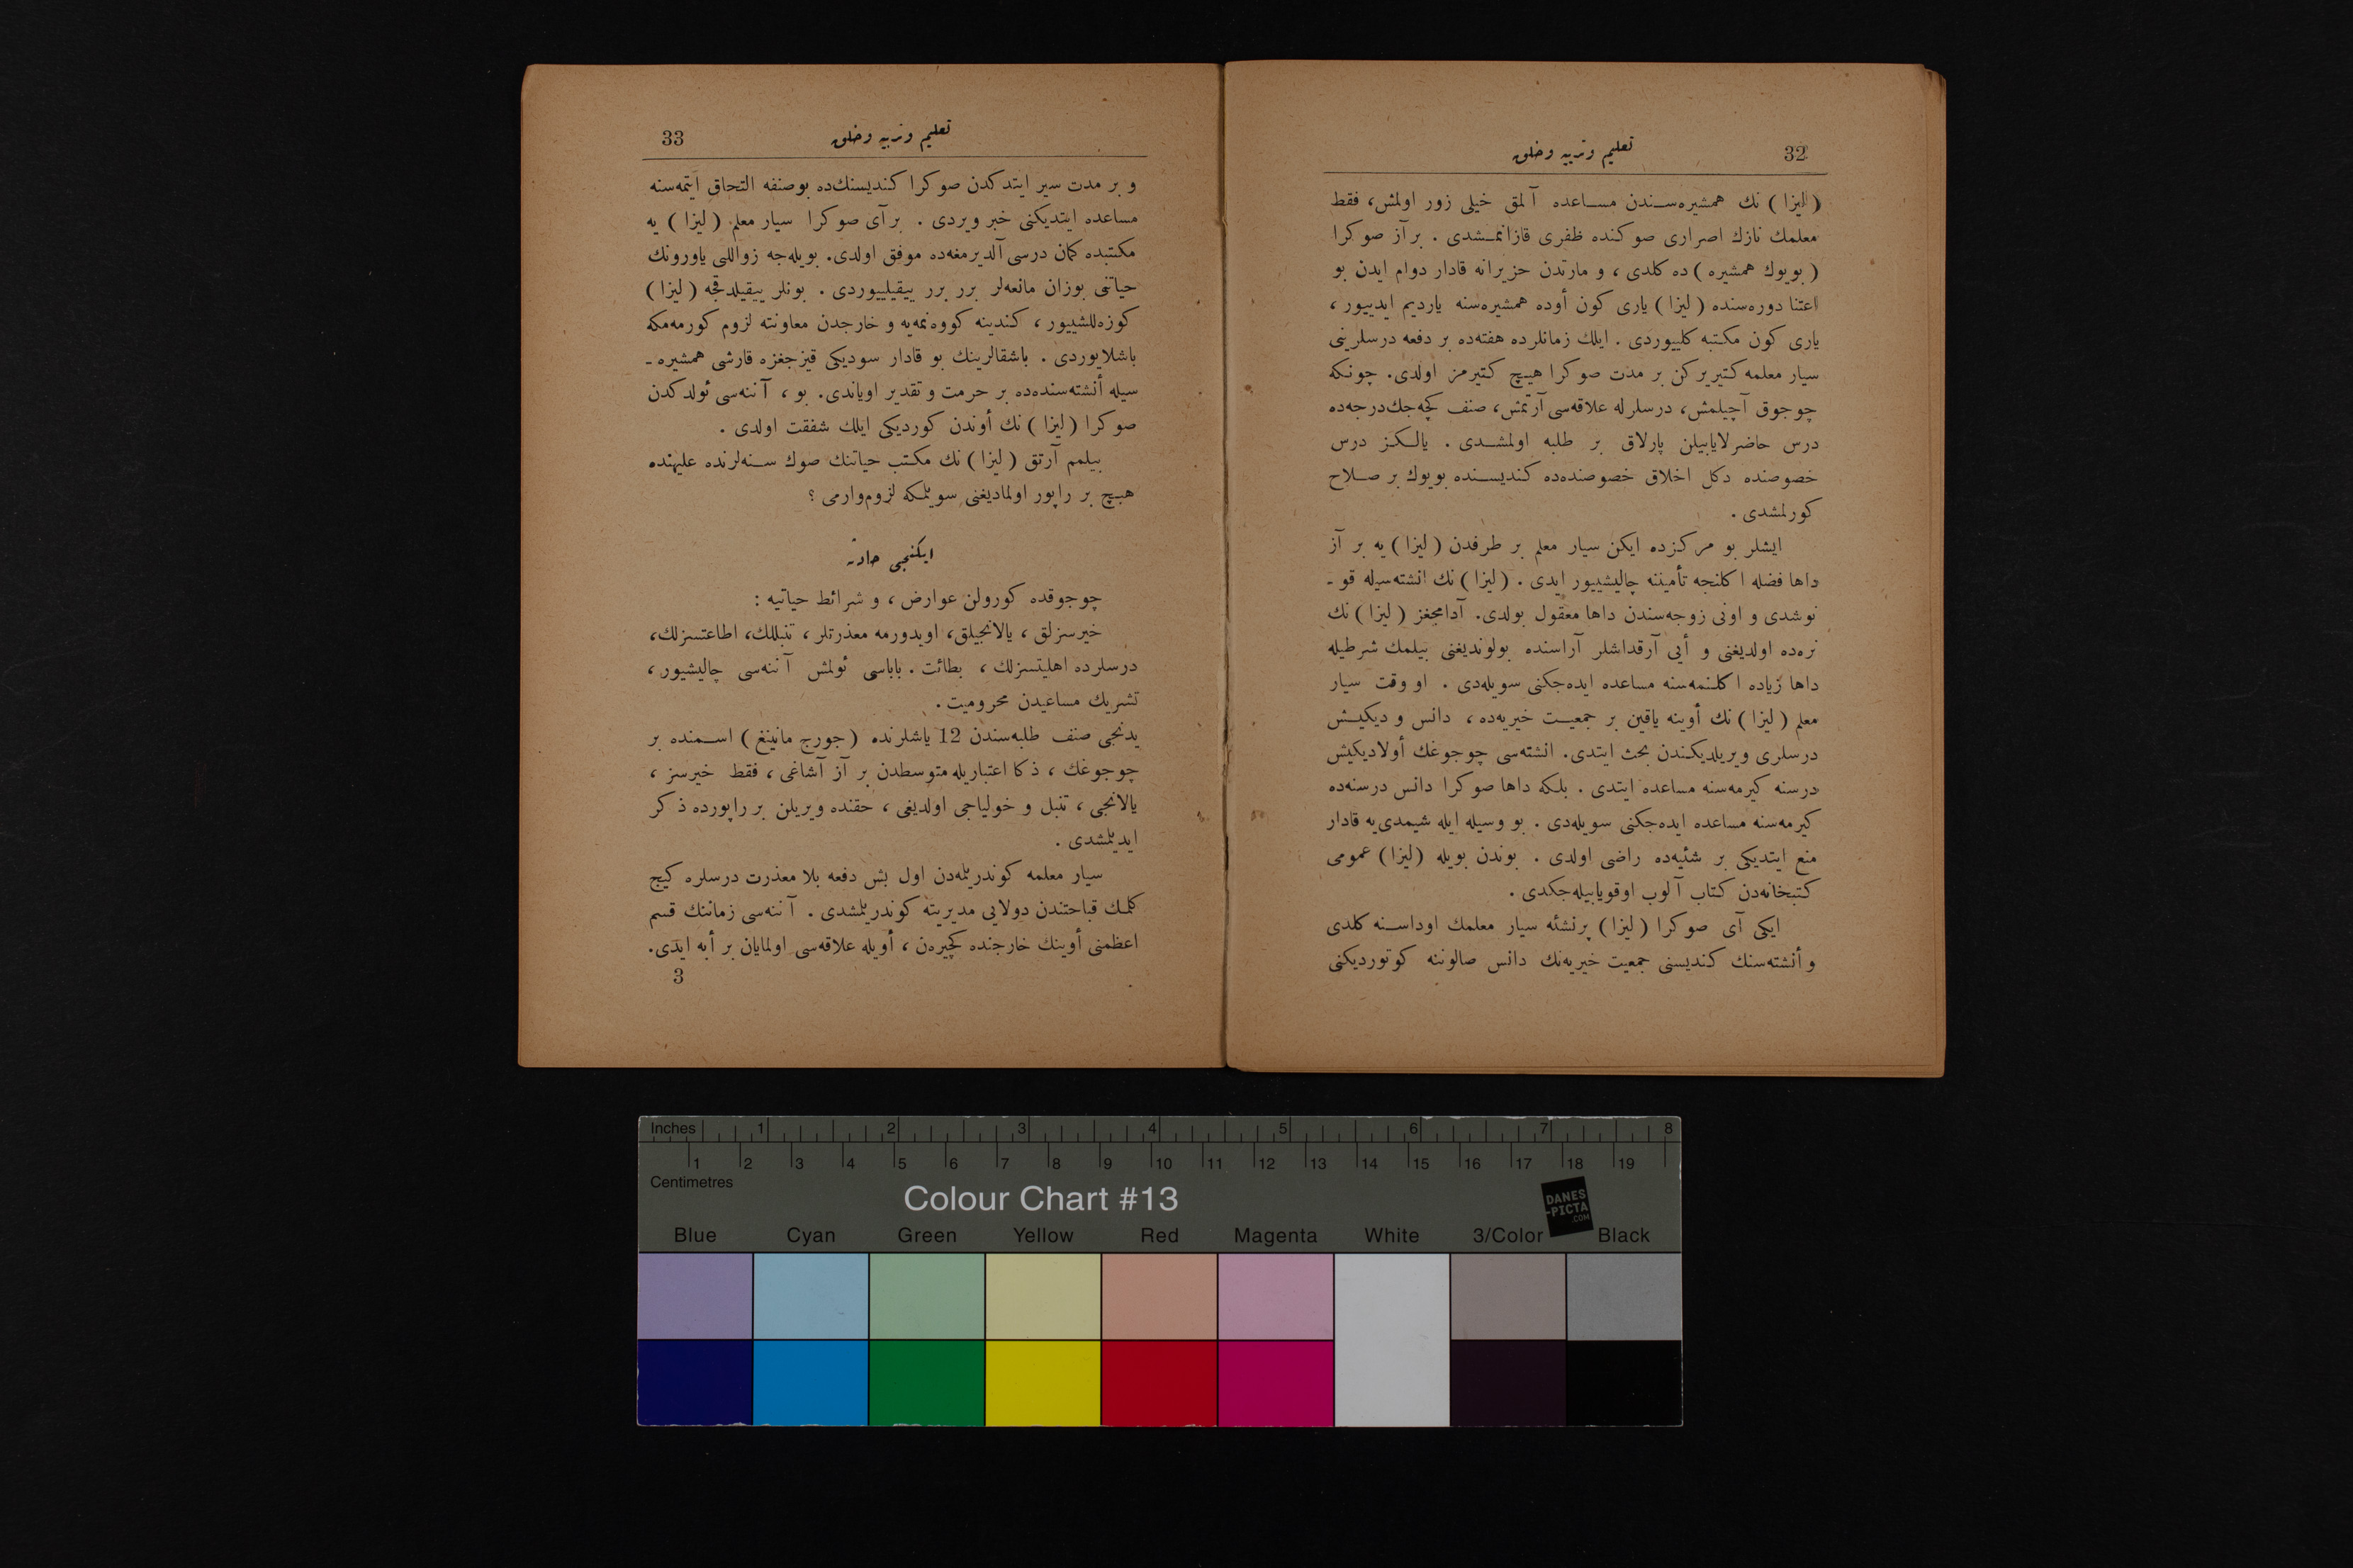 32
تعليم وتربيه وخلق
( ليزا ) نك همشيره‌سندن مساعده آلمق خيلى زور اولمش، فقط
معلمك نازك اصرارى صوكنده ظفرى قازانمشدى . بر آز صوكرا
( بويوك همشيره ) ده كلدى ، و مارتدن حزيرانه قادار دوام ايدن بو
اعتنا دوره‌سنده ( ليزا ) يارى كون أوده همشيره‌سنه يارديم ايدييور ،
يارى كون مكتبه كلييوردى . ايلك زمانلرده هفته‌ده بر دفعه درسلرينى
سيار معلمه كتيريركن بر مدت صوكرا هيچ كتيرمز اولدى. چونكه
چوجوق آچيلمش، درسلرله علاقه‌سى آرتمش، صنف كچه‌جك‌درجه‌ده
درس حاضرلايابيلن پارلاق بر طلبه اولمشدى . يالكز درس
خصوصنده دكل اخلاق خصوصنده‌ده كنديسنده بويوك بر صلاح
كورلمشدى .
ايشلر بو مركزده ايكن سيار معلم بر طرفدن ( ليزا ) يه بر آز
داها فضله اكلنجه تأميننه چاليشييور ايدى . ( ليزا ) نك انشته‌سيله قو -
نوشدى و اونى زوجه‌سندن داها معقول بولدى. آدامجغز ( ليزا ) نك
نره‌ده اولديغنى و أيى آرقداشلر آراسنده بولونديغنى بيلمك شرطيله
داها زياده اكلنمه‌سنه مساعده ايده‌جكنى سويله‌دى . او وقت سيار
معلم ( ليزا ) نك أوينه ياقين بر جمعيت خيريه‌ده ، دانس و ديكيش
درسلرى ويريلديكندن بحث ايتدى. انشته‌سى چوجوغك أولاديكيش
درسنه كيرمه‌سنه مساعده ايتدى . بلكه داها صوكرا دانس درسنه‌ده
كيرمه‌سنه مساعده ايده‌جكنى سويله‌دى . بو وسيله ايله شيمدى‌يه قادار
منع ايتديكى بر شئيه‌ده راضى اولدى . بوندن بويله (ليزا) عمومى
كتبخانه‌دن كتاب آلوب اوقويابيله‌جكدى .
ايكى آى صوكرا ( ليزا ) پرنشئه سيار معلمك اوداسنه كلدى
و أنشته‌سنك كنديسنى جمعيت خيريه‌نك دانس صالوننه كوتورديكنى
33
تعليم وتربيه وخلق
و بر مدت سير ايتدكدن صوكرا كنديسنك‌ده بوصنفه التحاق ايتمه‌سنه
مساعده ايتديكنى خبر ويردى . بر آى صوكرا سيار معلم ( ليزا ) يه
مكتبده كمان درسى آلديرمغه‌ده موفق اولدى. بويله‌جه زواللى ياورونك
حياتنى بوزان مانعه‌لر برر برر ييقيلييوردى . بونلر ييقيلدقجه ( ليزا )
كوزه‌للشييور ، كندينه كووه‌نمه‌يه و خارجدن معاونته لزوم كورمه‌مكه
باشلايوردى . باشقالرينك بو قادار سوديكى قيزجغزه قارشى همشيره -
سيله أنشته‌سنده‌ده بر حرمت و تقدير اوياندى. بو ، آننه‌سى ئولدكدن
صوكرا ( ليزا ) نك أوندن كورديكى ايلك شفقت اولدى .
بيلمم آرتق ( ليزا ) نك مكتب حياتنك صوك سنه‌لرنده عليهنده
هيچ بر راپور اولماديغنى سويلمكه لزوم‌وارمى ؟
ايكنجى حادثه
چوجوقده كورولن عوارض ، و شرائط حياتيه :
خيرسزلق ، يالانجيلق، اويدورمه معذرتلر ، تنبللك، اطاعتسزلك،
درسلرده اهليتسزلك ، بطائت . باباسى ئولمش آننه‌سى چاليشيور ،
تشريك مساعيدن محروميت .
يدنجى صنف طلبه‌سندن 12 ياشلرنده ( جورج مانينغ ) اسمنده بر
چوجوغك ، ذكا اعتباريله متوسطدن بر آز آشاغى ، فقط خيرسز ،
يالانجى ، تنبل و خولياجى اولديغى ، حقنده ويريلن بر راپورده ذكر
ايديلمشدى .
سيار معلمه كوندريلمه‌دن اول بش دفعه بلا معذرت درسلره كيج
كلمك قباحتندن دولايى مديريته كوندريلمشدى . آننه‌سى زماننك قسم
اعظمنى أوينك خارجنده كچيره‌ن ، أويله علاقه‌سى اولمايان بر أبه ايدى.
3
Inches 1 2 3 4 5 6 7 8
1 2 3 4 5 6 7 8 9 10 11 12 13 14 15 16 17 18 19
Centimetres
Colour Chart #13
DANES
-PICTA
.COM
Blue Cyan Green Yellow Red Magenta White 3/Color Black